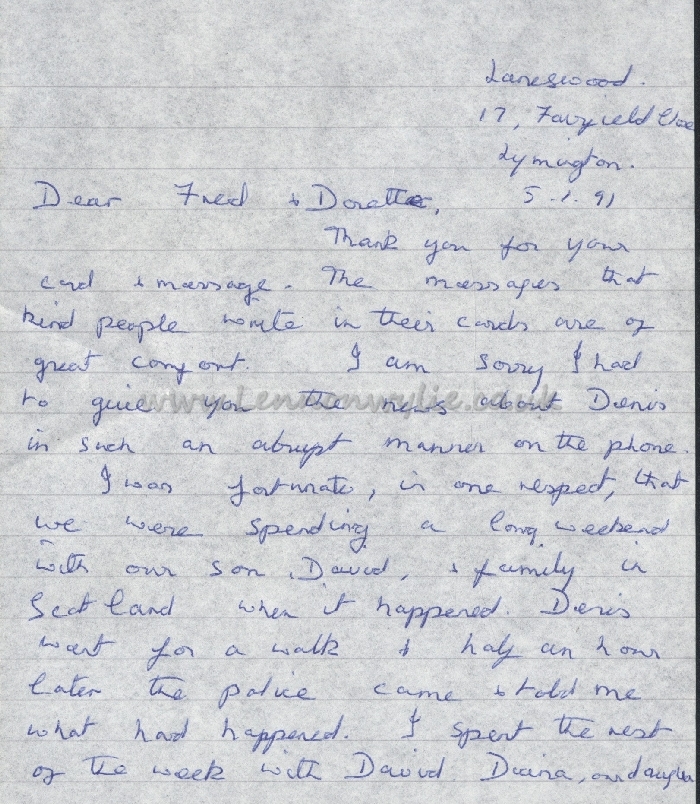 Laneswood.
17, Fairfield Close
Lymington.
5.1.91
Dear Fred & Doretta,
Thank you for your
card & message. The messages that
kind people write in their cards are of
great comfort. I am sorry I had
to give you the news about Denis
in such an abrupt manner on the phone.
I was fortunate, in one respect, that
we were spending a long weekend
with our son, David, & family in
Scotland when it happened. Denis
went for a walk & half an hour
later the police came & told me
what had happened. I spent the rest
of the week with David Diana, our daughter
www.Lennonwylie.co.uk